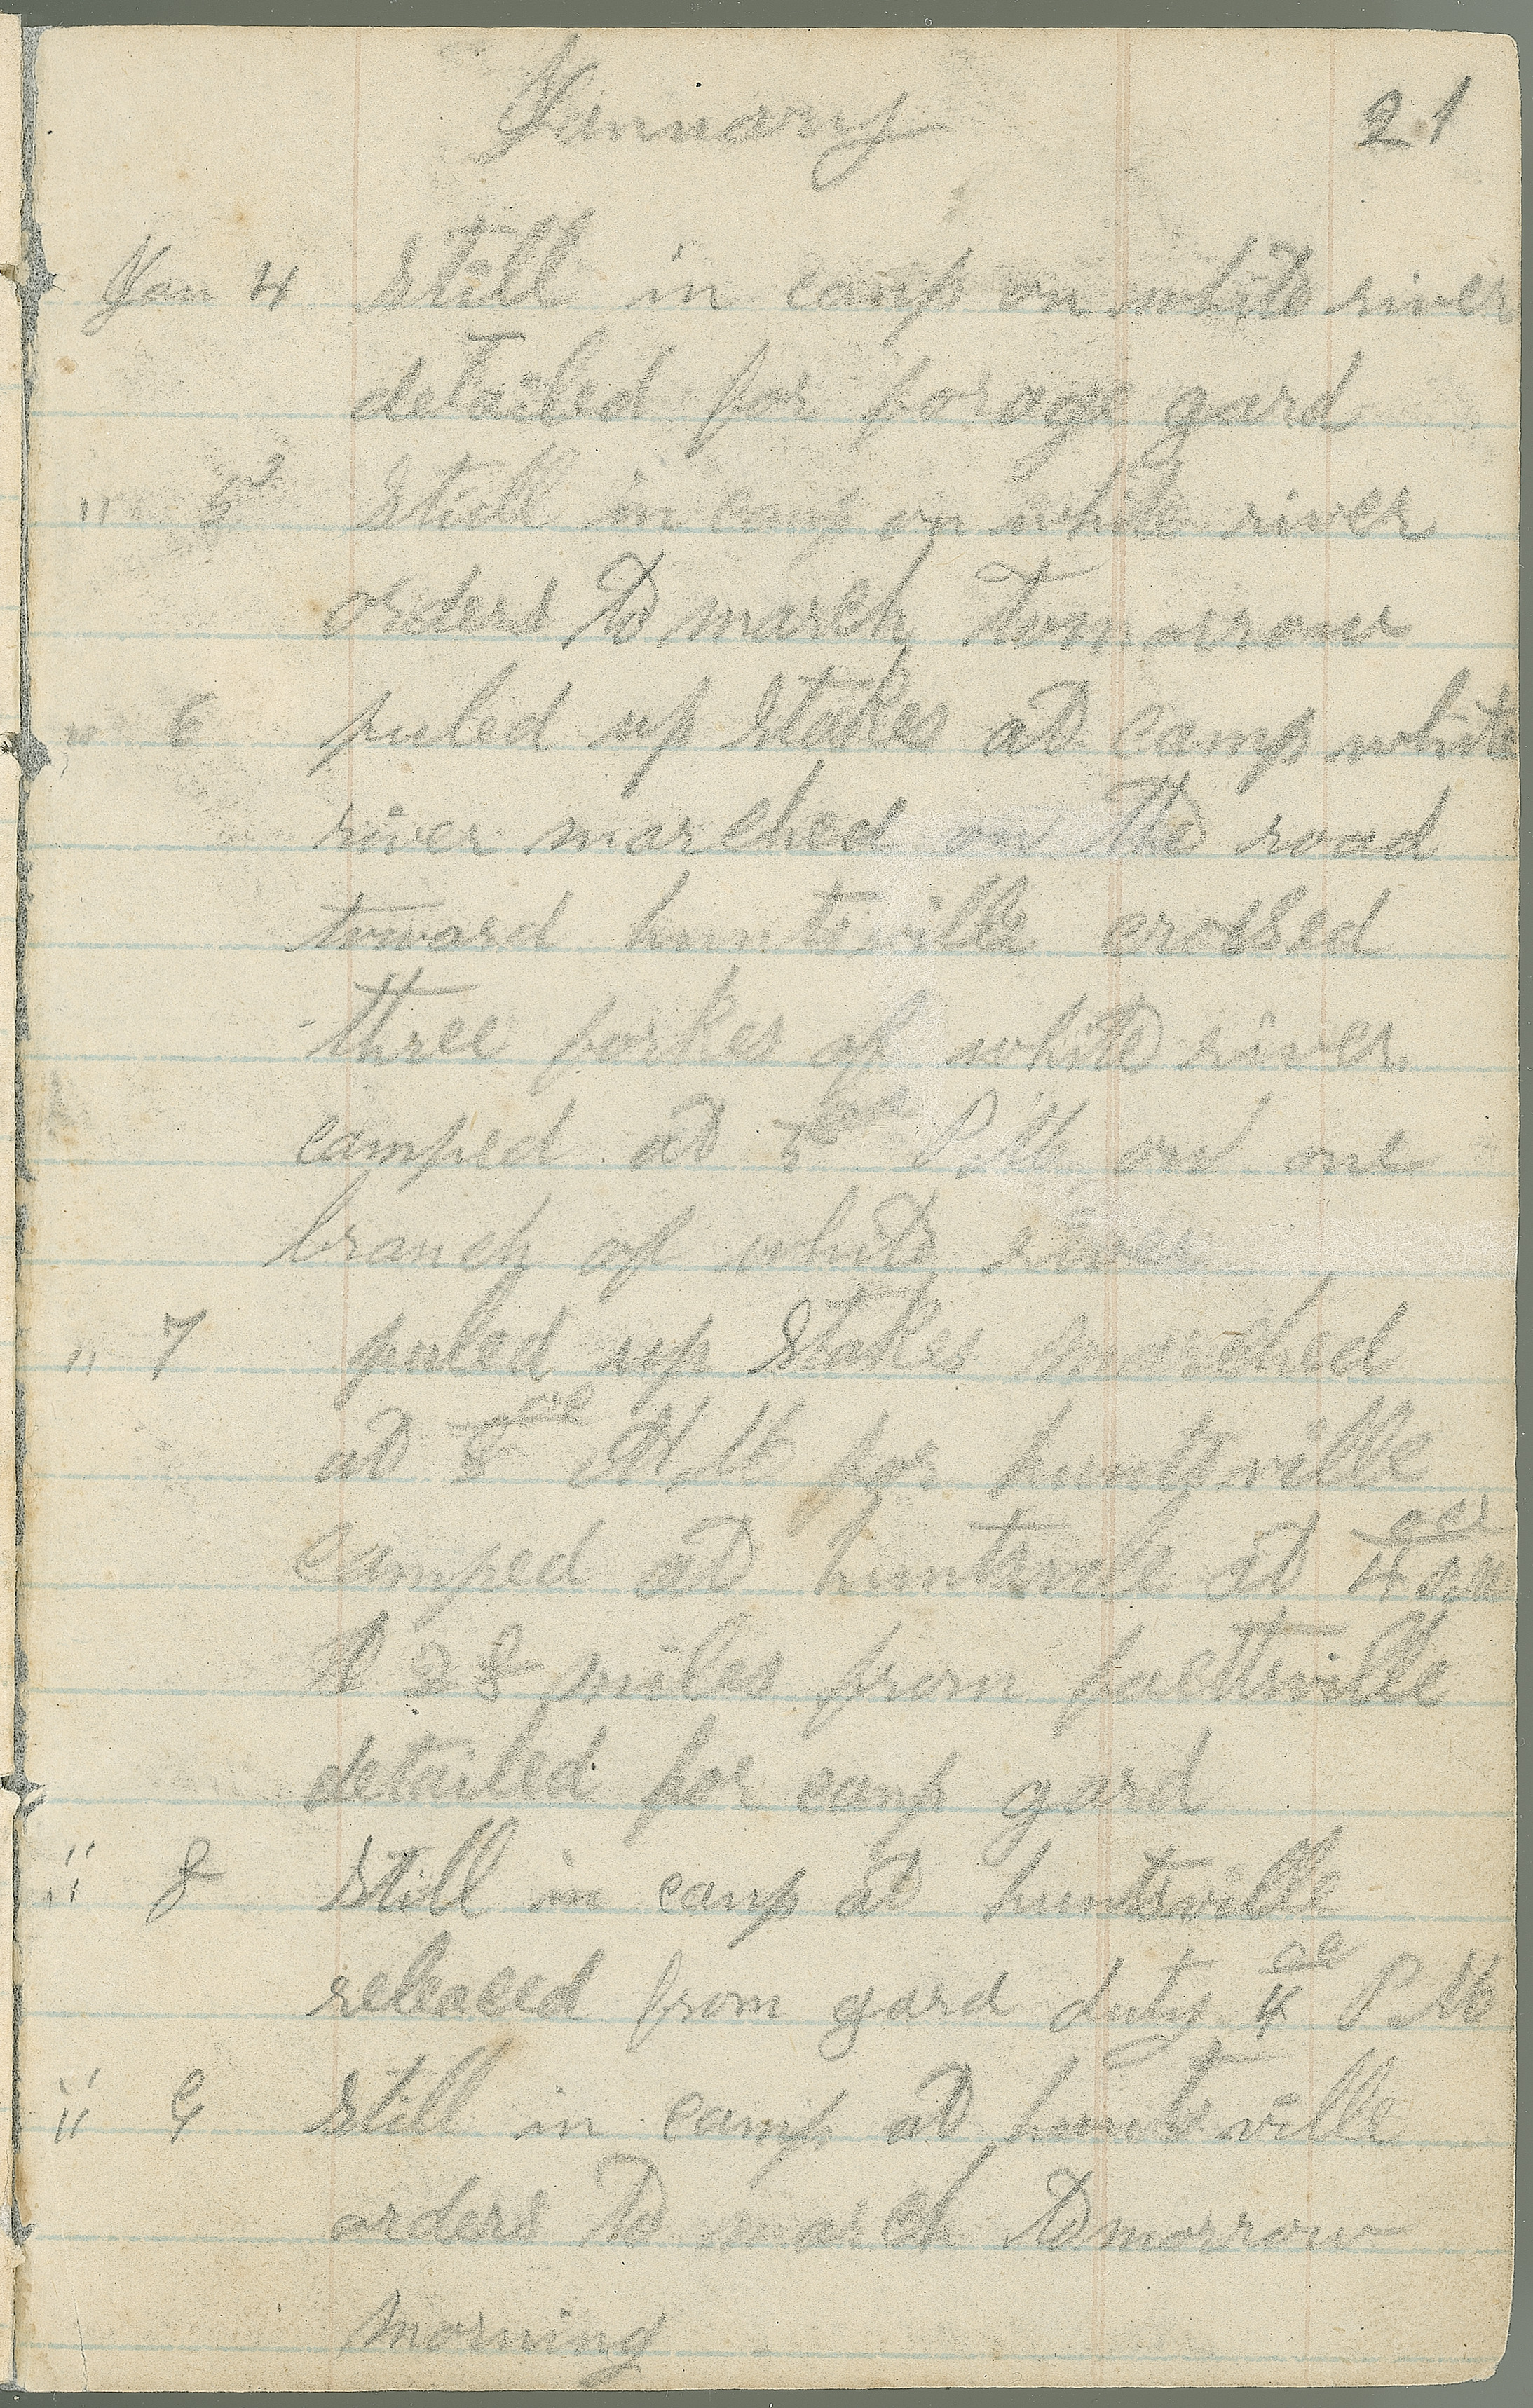 January 21
Jan 4 Still in camp on white river
detailed for forage gard
" 5 Still in camp on white river
orders to march tomorrow
" 6 puled up Stakes at camp white
river marched on the road
toward huntsville crossed
three forkes of white river
camped at 5 P.M. on one
branch of white river
" 7 puled up Stakes marched
at 8 A M for huntsville
camped at huntsvile at 4 P.M
28 miles from faettsville
detailed for camp gard
" 8 Still in camp at huntsville
releaced from gard duty P.M
" 9 Still in camp at huntsville
orders to march tomorrow
morning